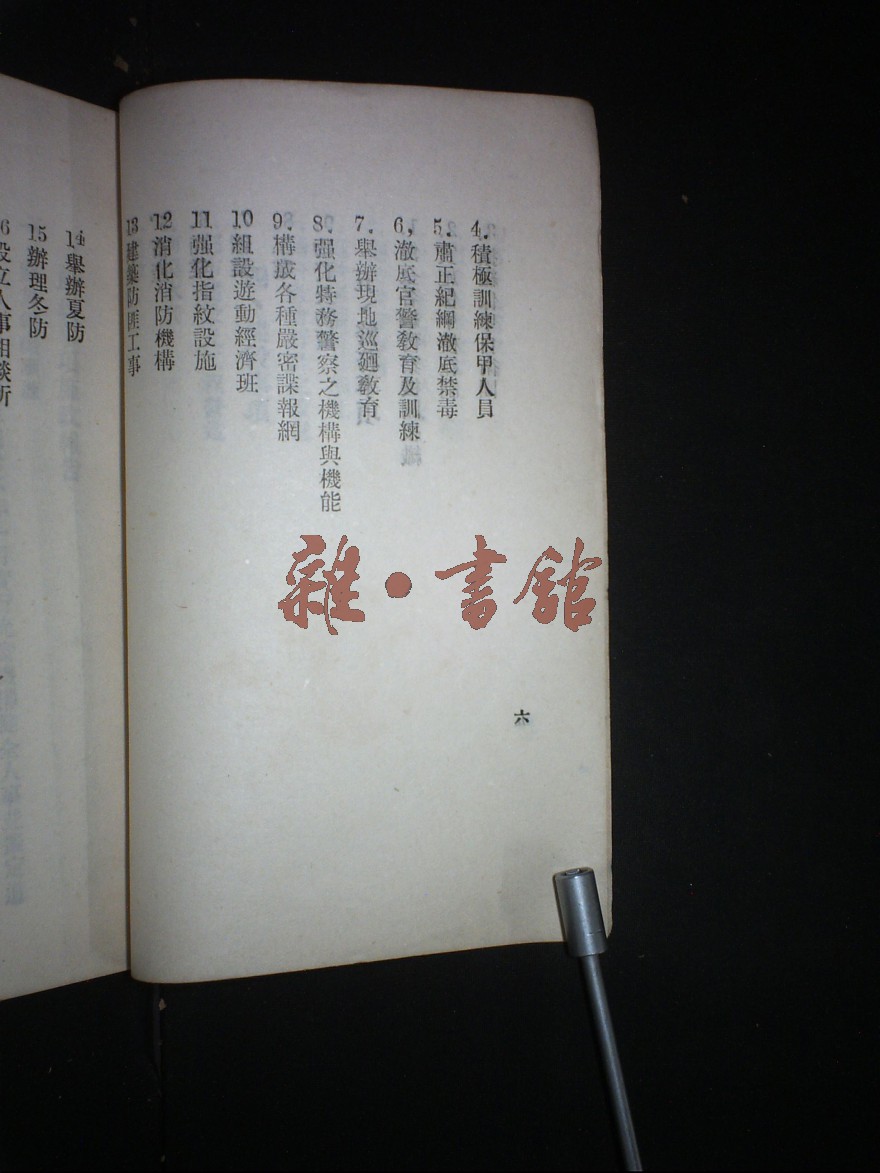 4.積極訓練保甲人員
5.肅正紀綱澈底禁毒
6,澈底官警敎育及訓練
7.舉辦現地巡廻敎育
8.强化特務警察之機構與機能
9.構成各種嚴密諜報網
10組設遊動經濟班
11强化指紋設施
12消化消防機構
13建築防匪工事
六
14舉辦夏防
15辦理冬防
6設立人事相談所
雜·書館